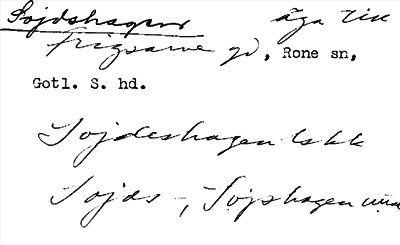 Sojdshagen äga till
Frigsarve gd, Rone sn,
Gotl. S. hd.
Sojdeshagen lskk
Sojds -, Sojshagen